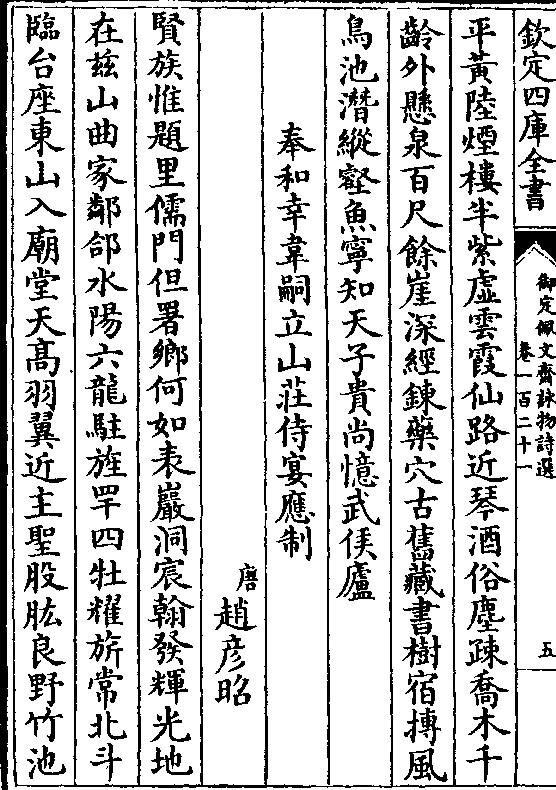 欽定四庫全書
御定佩文齋詠物詩選
卷一百二十一
五
平黃陸煙樓半紫虛雲霞仙路近琴酒俗塵疎喬木千
齡外懸泉百尺餘崖深經鍊藥穴古舊藏書樹宿摶風
鳥池潛縱壑魚寧知天子貴尚憶武侯廬
奉和幸韋嗣立山莊侍宴應制
唐趙彥昭
賢族惟題里儒門但署鄉何如表巖洞宸翰發輝光地
在茲山曲家鄰郃水陽六龍駐旌罕四牡耀旂常北斗
臨台座東山入廟堂天高羽翼近主聖股肱良野竹池